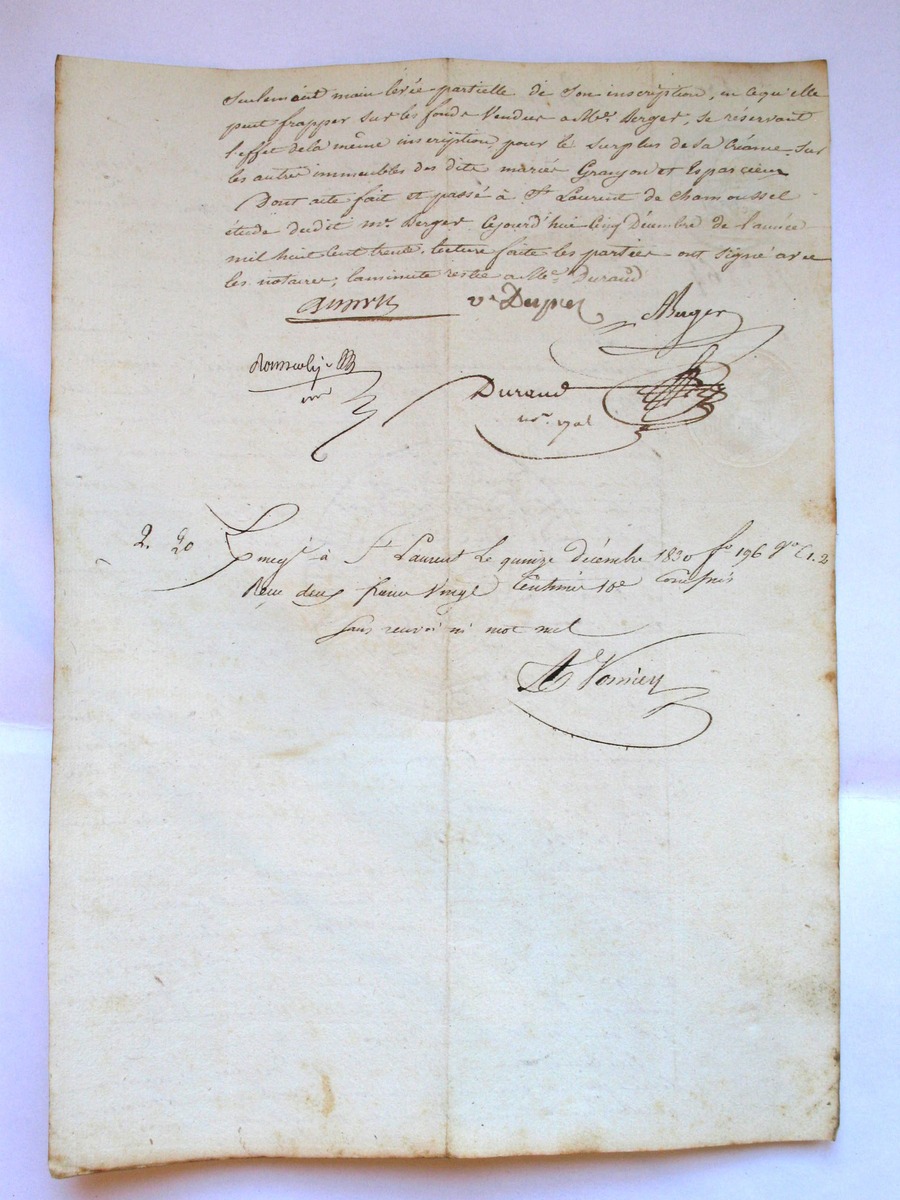 seulement main levée partielle de son inscription, en ce qu'elle
peut frapper sur les fonds vendus a Mr. Berger, se réservant
l'effet de la même inscription pour le surplus de sa créance sur
les autres immeubles des dits mariés Granjon et Esparcieux
Dont acte fait et passé à St Laurent de Chamousset
étude dudit Mr. Berger cejourd'hui cinq Décembre de l'année
mil huit cent trente, lecture faite les parties ont signé avec
les notaires, la minute reste a Me. Durand
ve Duprei
ABerger
Durand
2. 20
Enregé à St Laurent le quinze décembre 1830 fo 196 Vo C 1. 2
Reçu deux francs vingt centimes 10e compris
sans renvoi ni mot nul